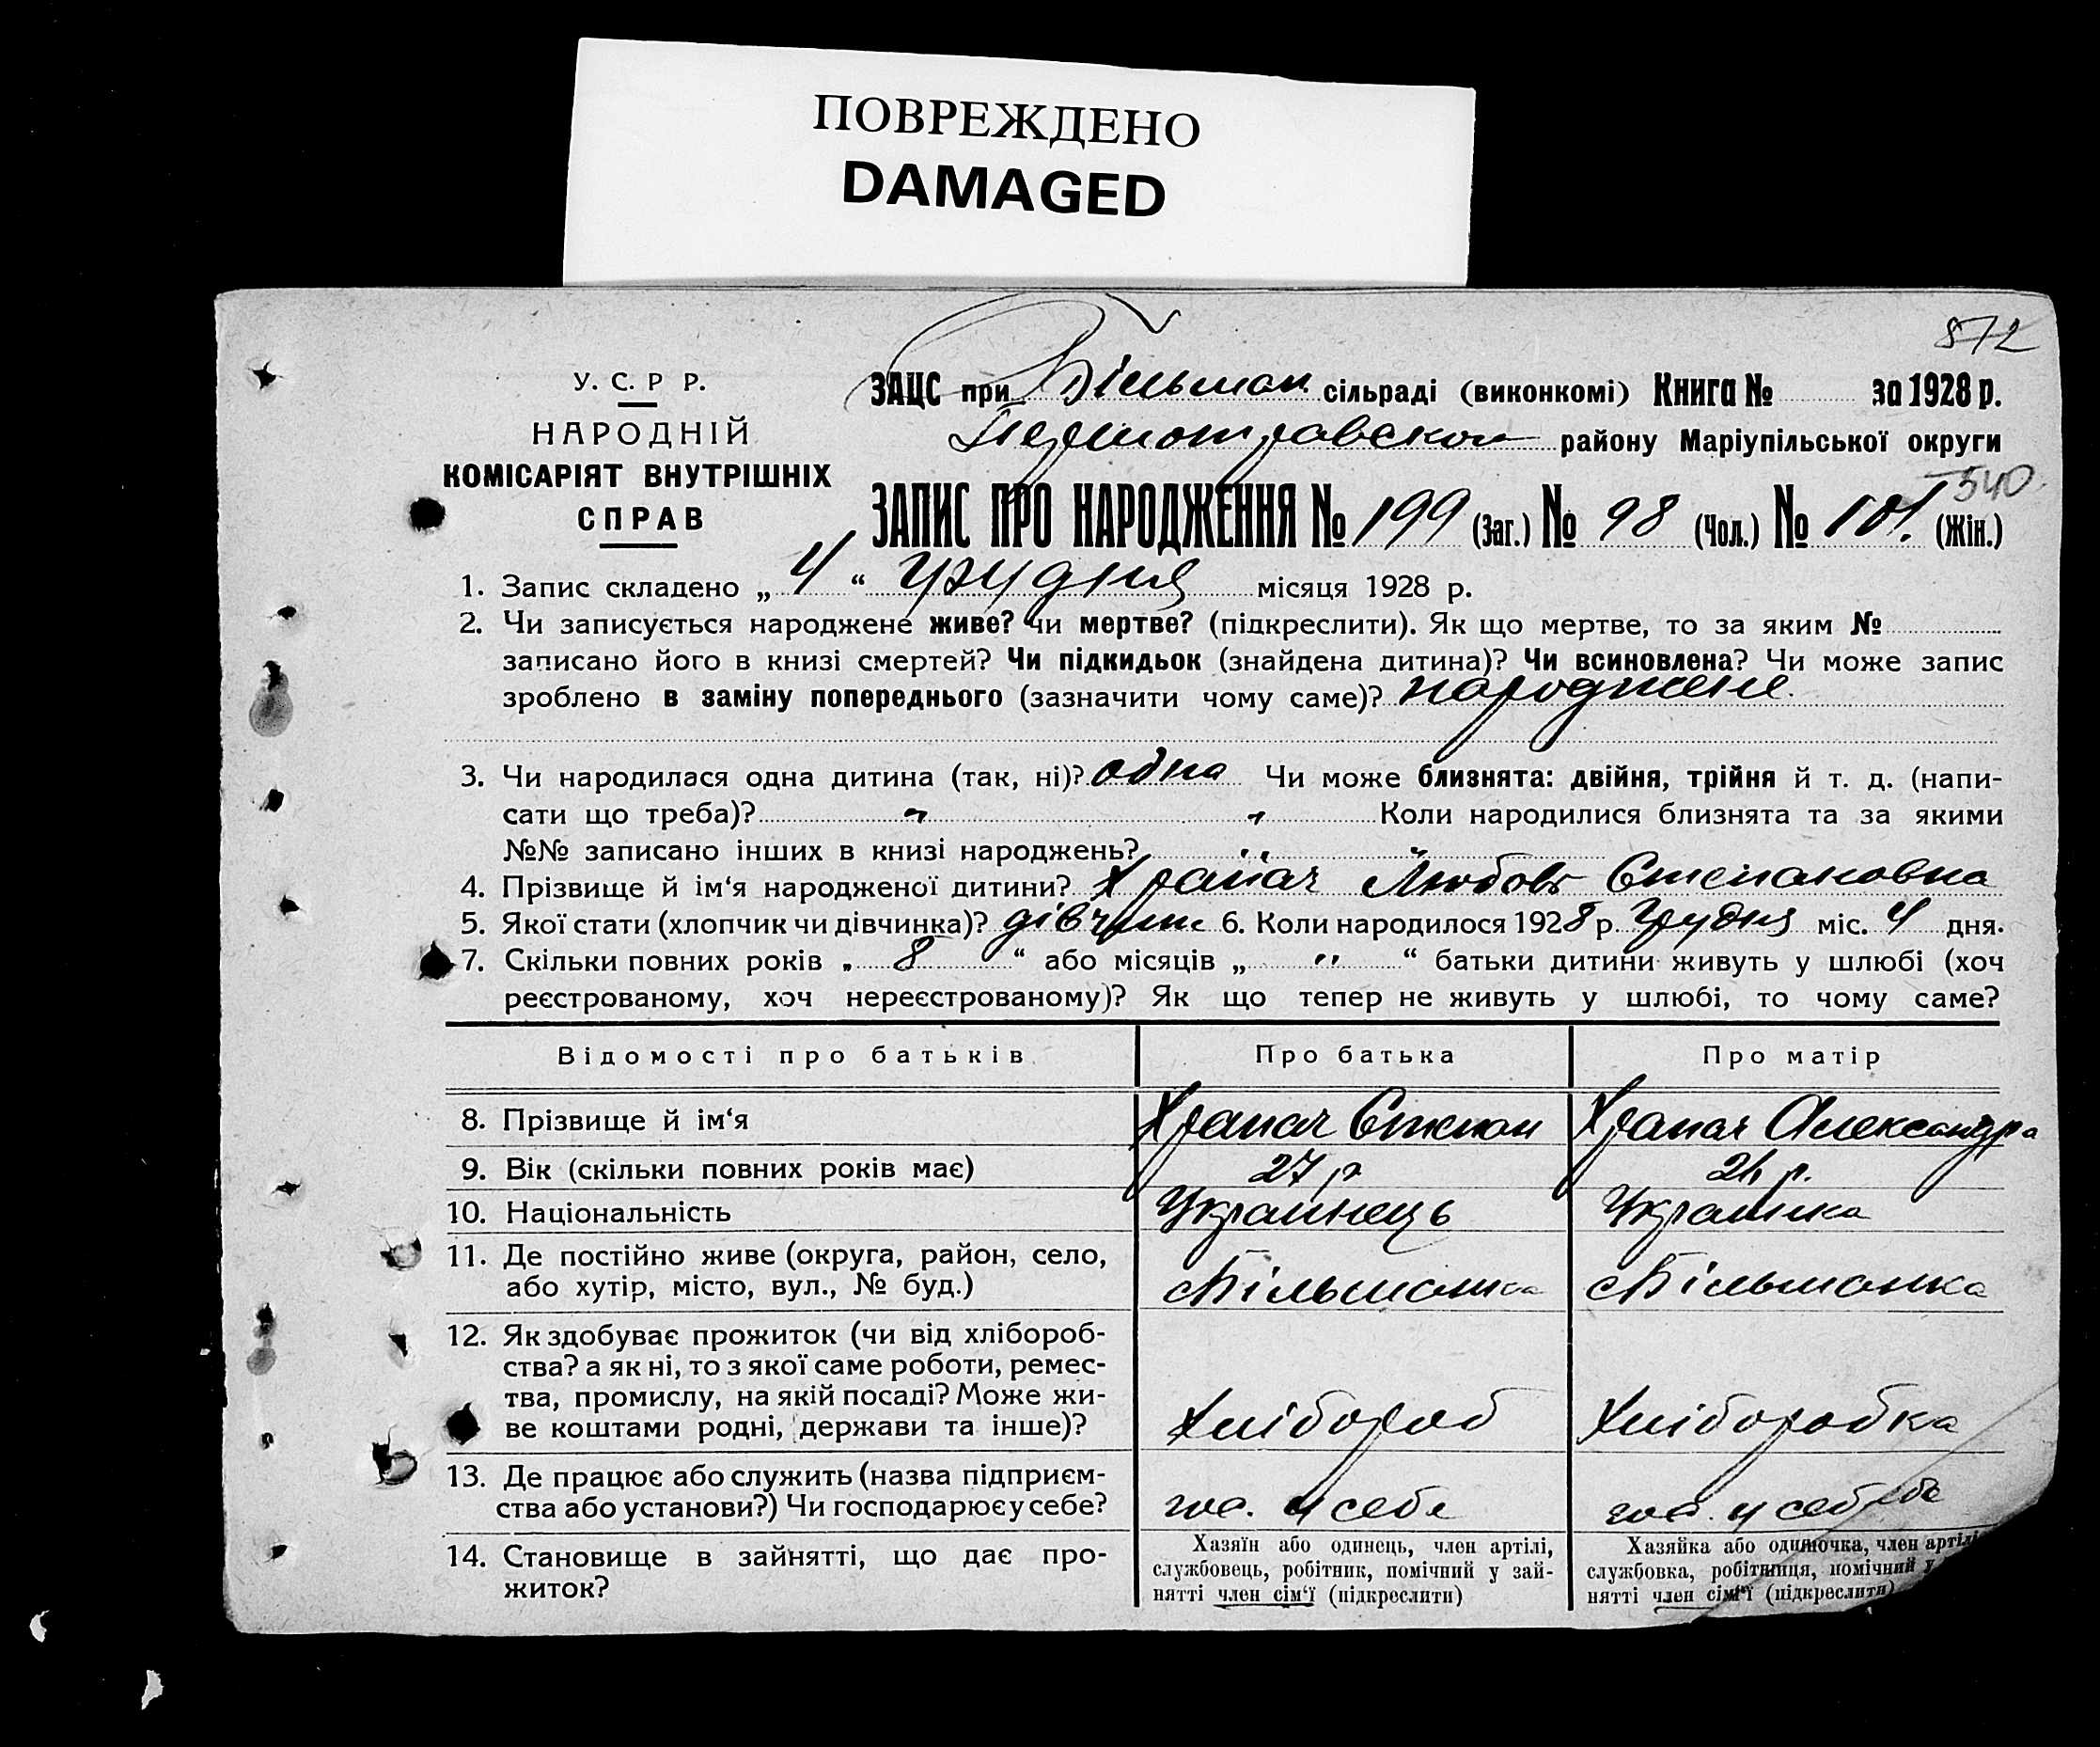 ПОВРЕЖДЕНО
DAMAGED
872
У. С. Р Р.
НАРОДНІЙ
КОМІСАРІЯТ ВНУТРІШНІХ
СПРАВ
ЗАЦС при Більман. сільраді (виконкомі) Книга № за 1928 р.
району Маріупільської округи
540
ЗАПИС ПРО НАРОДЖЕННЯ № 199 (Заг.) № 98 (Чол.) № 101. (Жін.)
1. Запис складено „ 4 “ Грудня місяця 1928 р.
2. Чи записується народжене живе? чи мертве? (підкреслити). Як що мертве, то за яким №
записано його в книзі смертей? Чи підкидьок (знайдена дитина)? Чи всиновлена? Чи може запис
зроблено в заміну попереднього (зазначити чому саме)? народжене.
3. Чи народилася одна дитина (так, ні)? одна Чи може близнята: двійня, трійня й т. д. (напи-
сати що треба)? „ „ Коли народилися близнята та за якими
№№ записано інших в книзі народжень? „
4. Прізвище й ім‘я народженої дитини? Храпач Любовь Степановна
5. Якої стати (хлопчик чи дівчинка)? 6. Коли народилося 1928 р. Грудня міс. 4 дня.
7. Скільки повних років „ 8 “ або місяців „ " “ батьки дитини живуть у шлюбі (хоч
реєстрованому, хоч нереєстрованому)? Як що тепер не живуть у шлюбі, то чому саме?
Відомості про батьків Про батька Про матір
8. Прізвище й ім‘я Храпач Степан Храпач Александра
9. Вік (скільки повних років має) 27 р 26 р.
10. Національність Украинець Украинка
11. Де постійно живе (округа, район, село,
або хутір, місто, вул., № буд.) с Більманка с Більманка
12. Як здобуває прожиток (чи від хлібороб-
ства? а як ні, то з якої саме роботи, ремес-
тва, промислу, на якій посаді? Може жи-
ве коштами родні, держави та інше)? Хлібороб Хліборобка
13. Де працює або служить (назва підприєм-
ства або установи?) Чи господарює у себе? гос. у себе гос. у себе
14. Становище в зайнятті, що дає про-
житок?
Хазяїн або одинець, член артілі,
службовець, робітник, помічний у зай-
нятті член сім‘ї (підкреслити)
Хазяйка або одиночка, член артілі
службовка, робітниця, помічний у
нятті член сім‘ї (підкреслити)